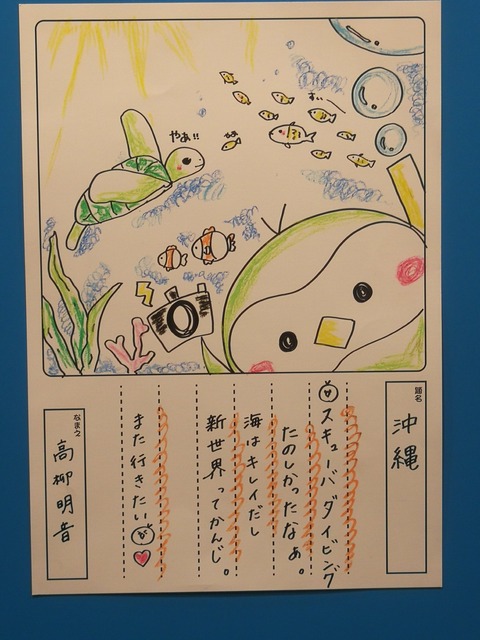 やぁ!!
すぃ〜
題名
沖縄
スキューバダイビング
たのしかったなぁ。
海はキレイだし
新世界ってかんじ。
また行きたい
なまえ
高柳明音